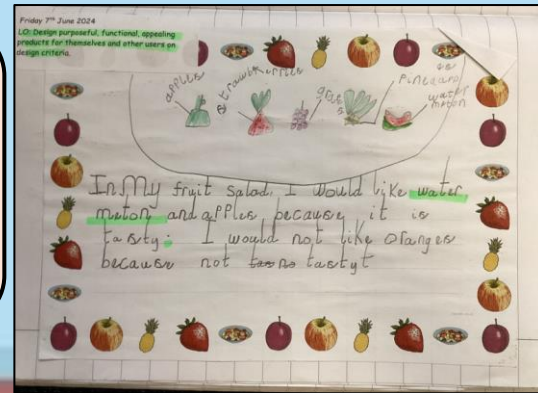 Friday 7th June 2024
LO: Design purposeful, functional, appealing
products for themselves and other users on
design criteria.
apples
grapes
water
melon
In My fruit salad. I would like water
melon and apples because it is
tasty. I would not like oranges
because not tasty